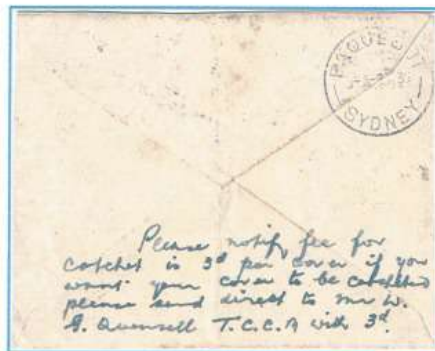 PAQUEBOT
SYDNEY
Please notify fee for
catchet is 3d per cover if you
want your cover to be catcheted
please send direct to Mr W.
T.C.C.A with 3d.